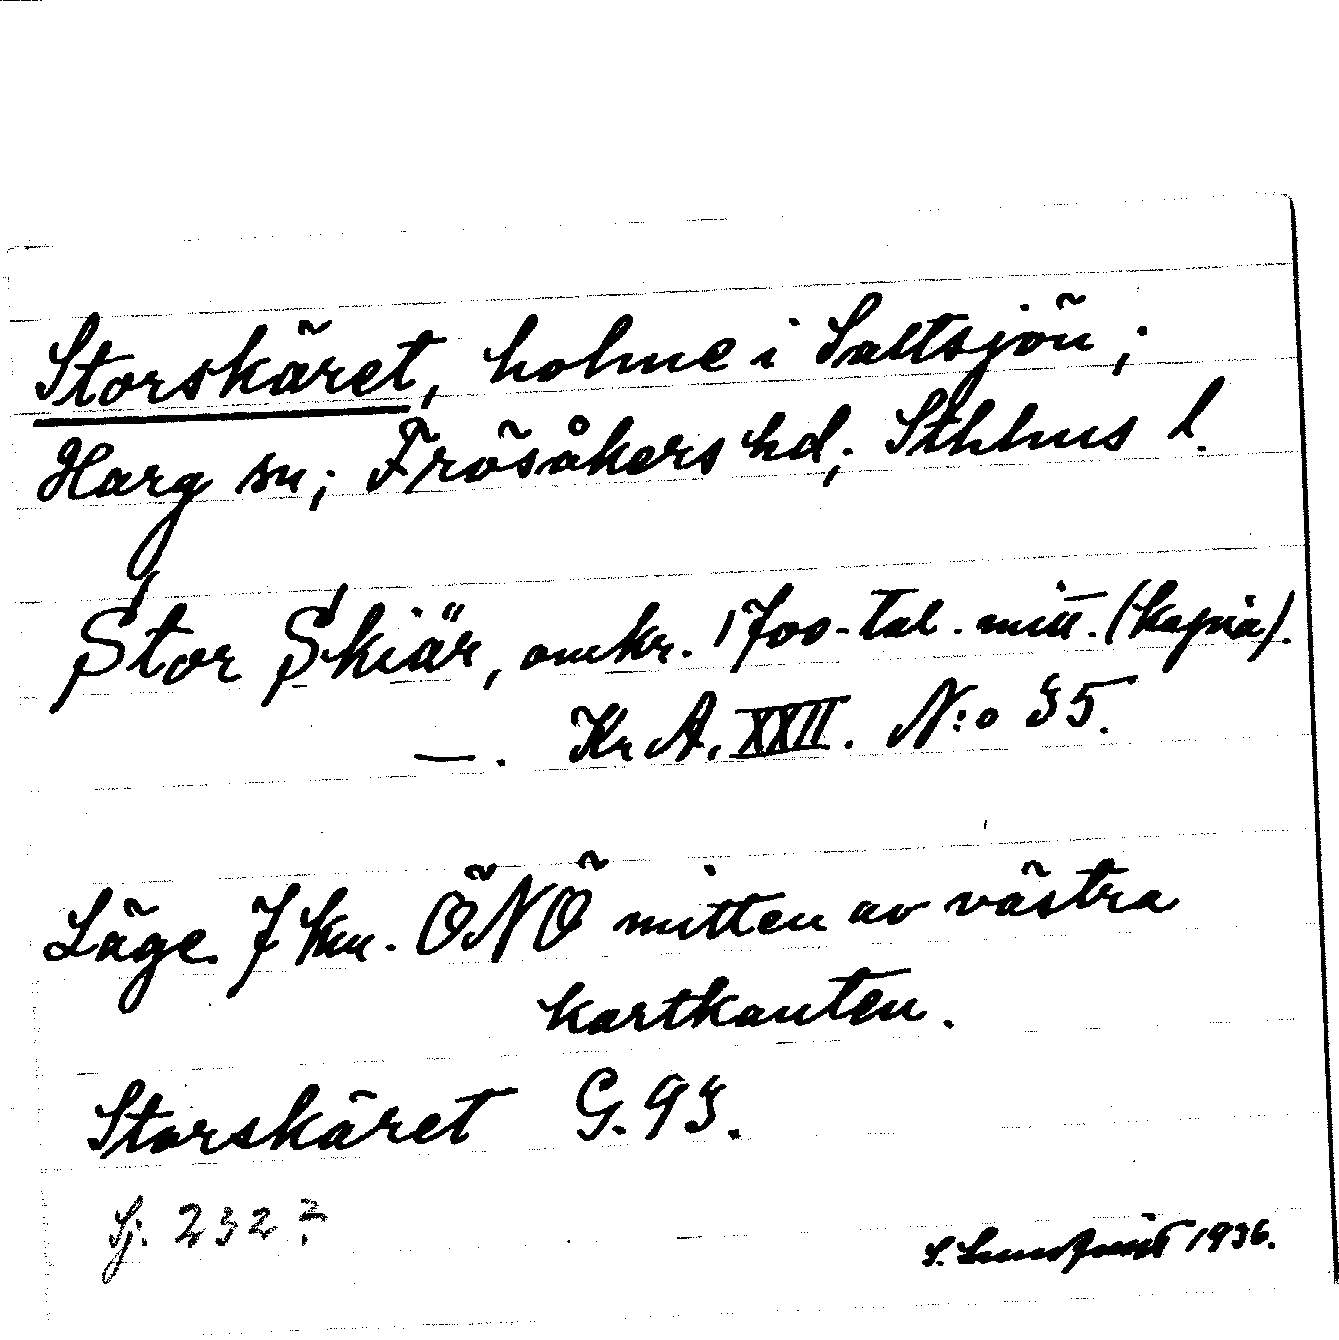 Storskäret, holme i Saltsjön;
Harg sn; Frösåkers hd; Sthlms l.
Stor Skiär, omkr. 1700-tal. mitt. (kopia).
—. Kr A. XXII. N:o 35.
Läge. 7 km. ÖNÖ mitten av västra
kartkanten.
Storskäret G. 93.
Sj. 232?
S. Lundqvist 1936.